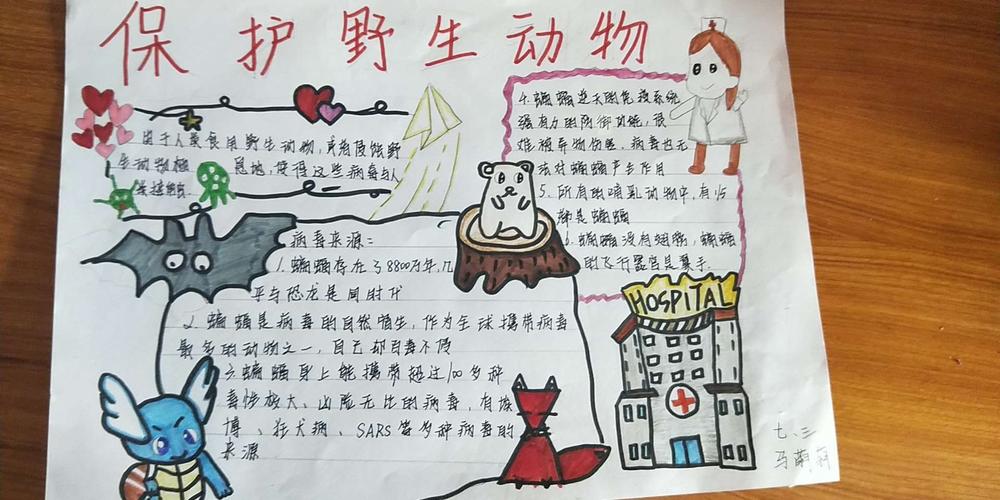 保护野生动物
由于人类食用野生动物,或者侵蚀野
生动物栖息地,使得这些病毒与人
类接触
病毒来源:
1.蝙蝠存在了8800万年,几
乎与恐龙是同时代
2.蝙蝠是病毒的自然宿主,作为全球携带病毒
最多的动物之一,自己却百毒不侵
3.蝙蝠身上能携带超过100多种
毒性极大、凶险无比的病毒,有埃
博、狂犬病、SARS等多种病毒的
来源
4.蝙蝠逆天的免疫系统
强有力的防御功能,很
难被异物伤害,病毒也无
法对蝙蝠产生作用
5.所有的哺乳动物中,有1/5
都是蝙蝠
6.蝙蝠没有翅膀,蝙蝠
的飞行器官是翼手.
HOSPITAL
七、三
马萌